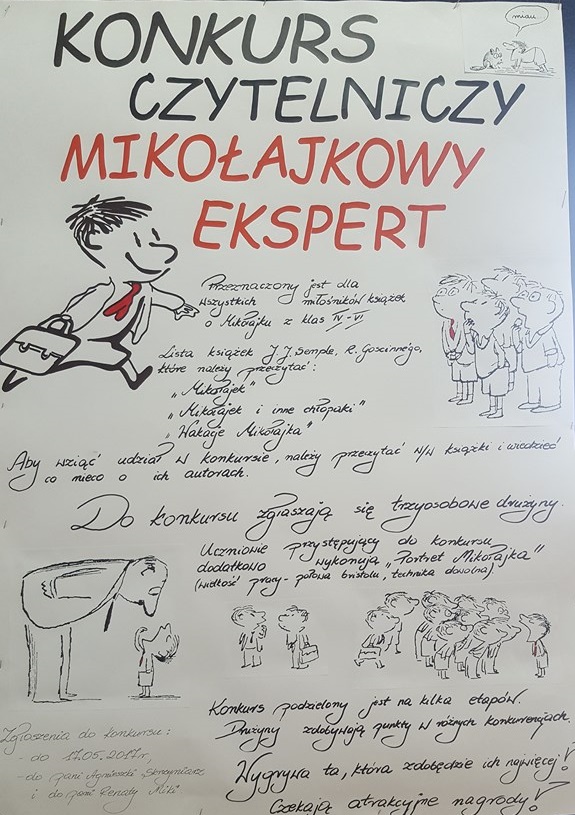 miau
KONKURS
CZYTELNICZY
MIKOŁAJKOWY
EKSPERT
Przeznaczony jest dla
wszystkich miłośników książek
o Mikołajku z klas IV-VI
Lista książek J.J. Semple, R. Goscinnego,
które należy przeczytać:
„Mikołajek"
„Mikołajek i inne chłopaki"
„Wakacje Mikołajka"
Aby wziąć udział w konkursie, należy przeczytać w/w książki i wiedzieć
co nieco o ich autorach.
Do konkursu zgłaszają się trzyosobowe drużyny.
Uczniowie przystępujący do konkursu
dodatkowo wykonują „Portret Mikołajka"
(wielkość pracy - połowa bristolu, technika dowolna)
Konkurs podzielony jest na kilka etapów.
Drużyny zdobywają punkty w różnych konkurencjach.
Wygrywa ta, która zdobędzie ich najwięcej!
Czekają atrakcyjne nagrody!
Zgłoszenia do konkursu:
- do 17.05.2017r,
- do pani Agnieszki Skrzyniarz
i do pani Renaty Miki